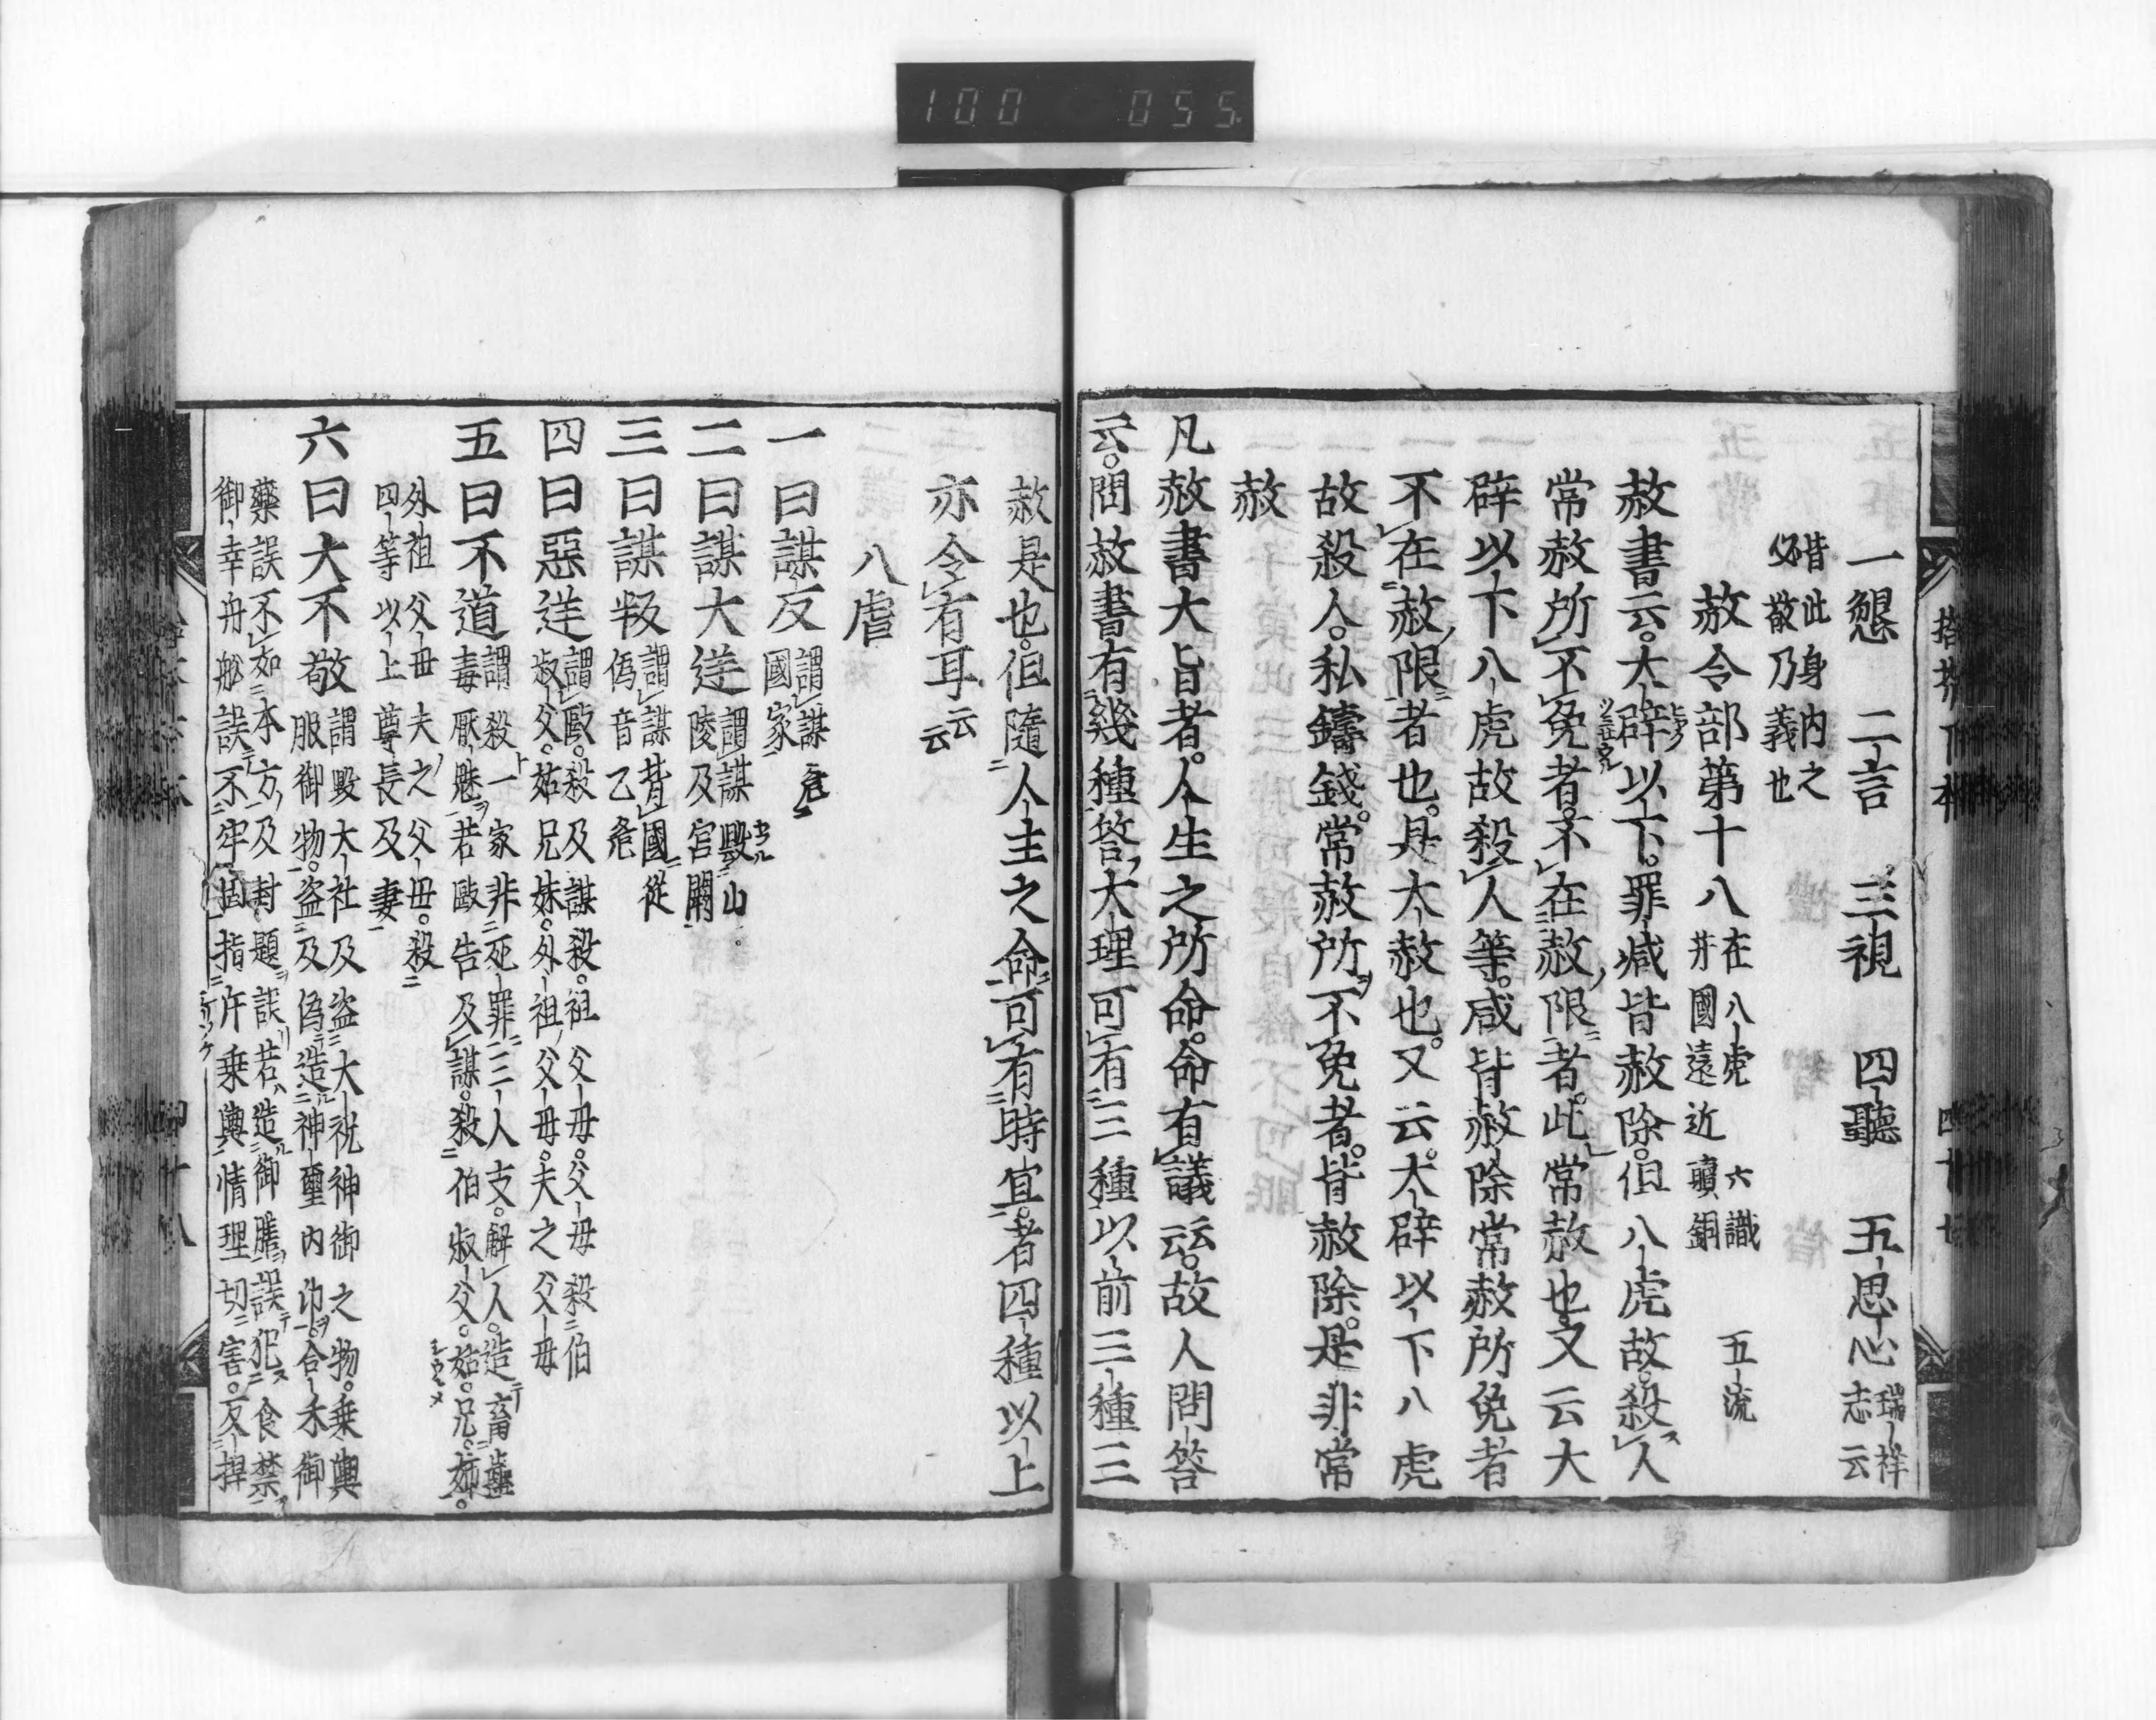 100 055
一懇 二言 三視 四聽 五思心 瑞祥志云
皆此身内之
必敬乃義也
赦令部第十八 在八虎 六議 五流
井國遠近 贖銅
赦書云。大辟以下。罪咸皆赦除。但八虎故。殺人
常赦所不免者。不在赦限者。此常赦也。又云大
辟以下八虎故殺人等。咸皆赦除常赦所免者
不在赦限者也。是大赦也。又云。大辟以下八虎
故殺人。私鑄錢。常赦所不免者。皆赦除。是非常
赦
凡赦書大旨者。人生之所命。命有議云云。故人問答
云云。問赦書有幾種答大理可有三種以前三種三
赦是也。但隨人主之命可有時宜者四種以上
亦令有耳云云
八虐
一曰謀反 謂謀危
國家
二曰謀大逆 謂謀毀山
陵及宮闕
三曰謀叛 謂謀背國從
偽音乙危
四曰惡逆 謂毆。殺及謀殺。祖父母。父母殺伯
叔父。姑兄妹。外祖父母。夫之父母
五曰不道 謂殺一家非死罪三人支。解人。造畜蠱
毒厭魅若毆告及謀。殺伯叔父。姑。兄。姉。
外祖父母夫之父母。殺
四等以上尊長及妻
六曰大不敬 謂毀大社及盗大祝神御之物。乗輿
服御物。盗及偽造神璽内印。合禾御
藥誤不如本方及封題誤若造御膳誤犯食禁
御幸舟舩誤不牢固指斥乗輿情理切害。及捍